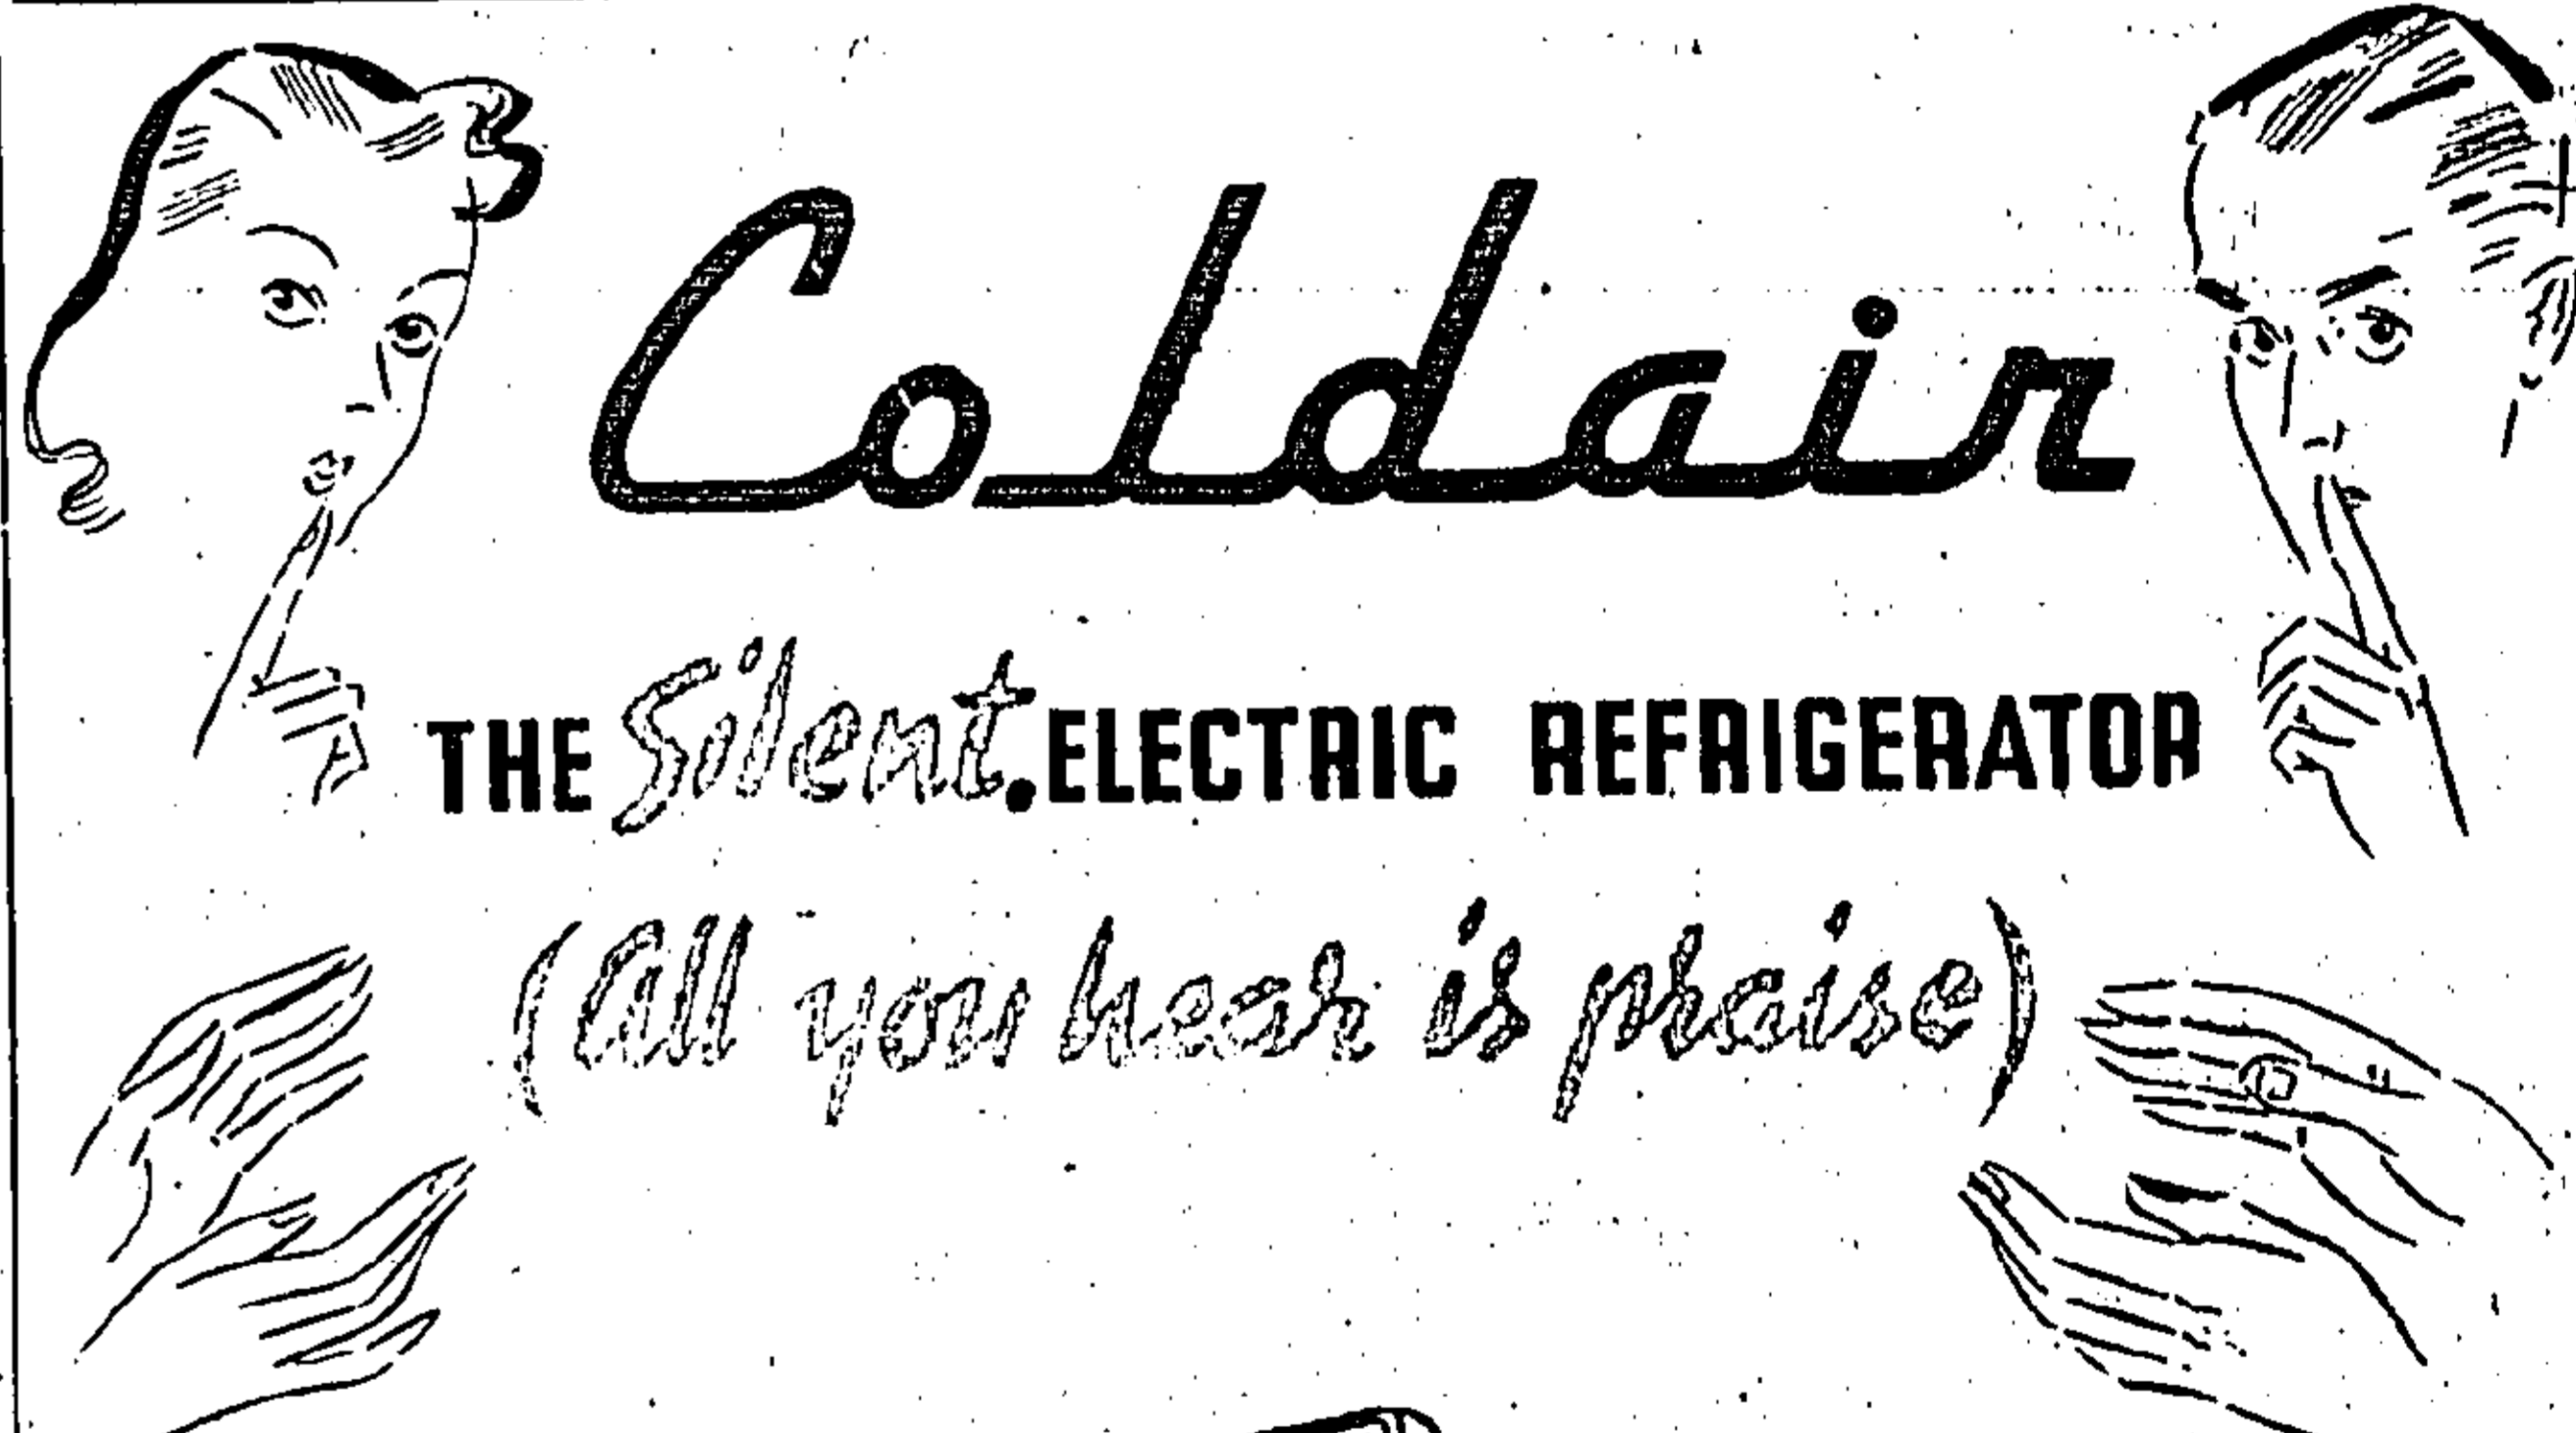 Coldair
THE Silent ELECTRIC REFRIGERATOR
(All you hear is praise)